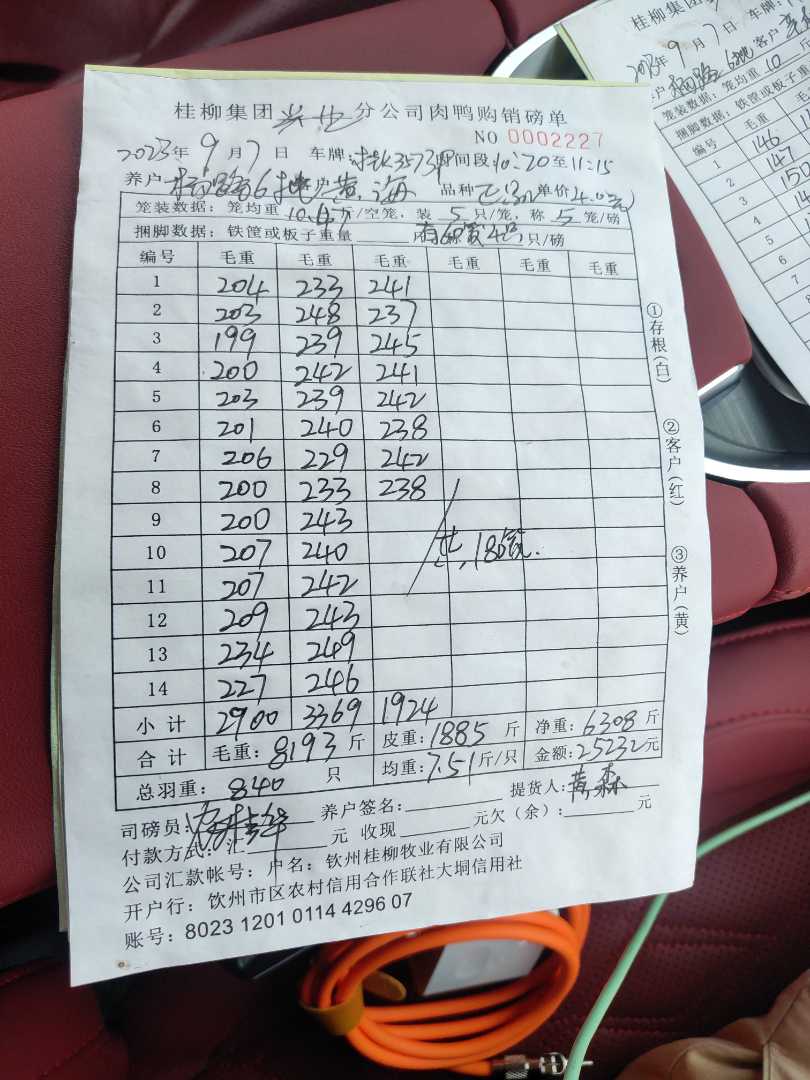 桂柳集团 分公司肉鸭购销磅单
NO 0002227
2023年 9 月 7 日 车牌: 时间段 10:20 至 11:15
养户 6 户 黄 海 品种 单价 4.0元
笼装数据: 笼均重 斤/空笼, 装 5 只/笼, 称 5 笼/磅
捆脚数据: 铁筐或板子重量 只/磅
编号 毛重 毛重 毛重 毛重 毛重 毛重
1 204 233 241
2 203 248 237
3 199 239 245
4 200 242 241
5 203 239 242
6 201 240 238
7 206 229 242
8 200 233 238
9 200 243
10 207 240 共, 180笼.
11 207 242
12 209 243
13 234 249
14 227 246
小 计 2900 3369 1924
合 计 毛重: 8193 斤 皮重: 1885 斤 净重: 6308 斤
总羽重: 840 只 均重: 7.51 斤/只 金额: 25232 元
司磅员: 养户签名: 提货人: 黄森
付款方式: 汇 元 收现 元欠(余): 元
公司汇款帐号: 户名: 钦州桂柳牧业有限公司
开户行: 钦州市区农村信用合作联社大垌信用社
账号: 8023 1201 0114 4296 07
①存根(白)
②客户(红)
③养户(黄)
桂柳集团
2023年 9 月 7 日 车牌:
户 客户
笼装数据: 笼均重 10
捆脚数据: 铁筐或板子重
编号 毛重 毛
1 146
2 147
3 150
4
5
6
7
8
9
10
11
12
13
14
小